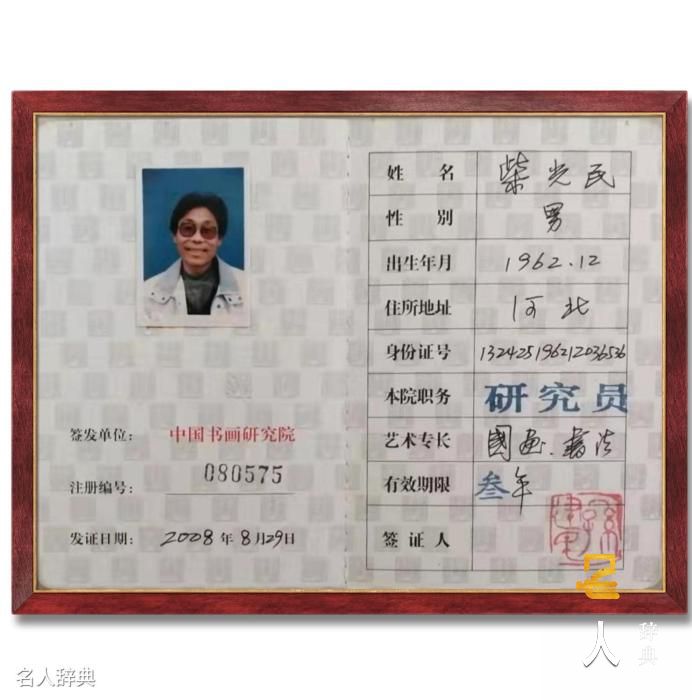 签发单位： 中国书画研究院
注册编号： 080575
发证日期： 2008年8月29日
姓名 柴光民
性别 男
出生年月 1962.12
住所地址 河北
身份证号 132425196212036536
本院职务 研究员
艺术专长 國画.書法
有效期限 叁年
签证人
名人辞典
名人辞典